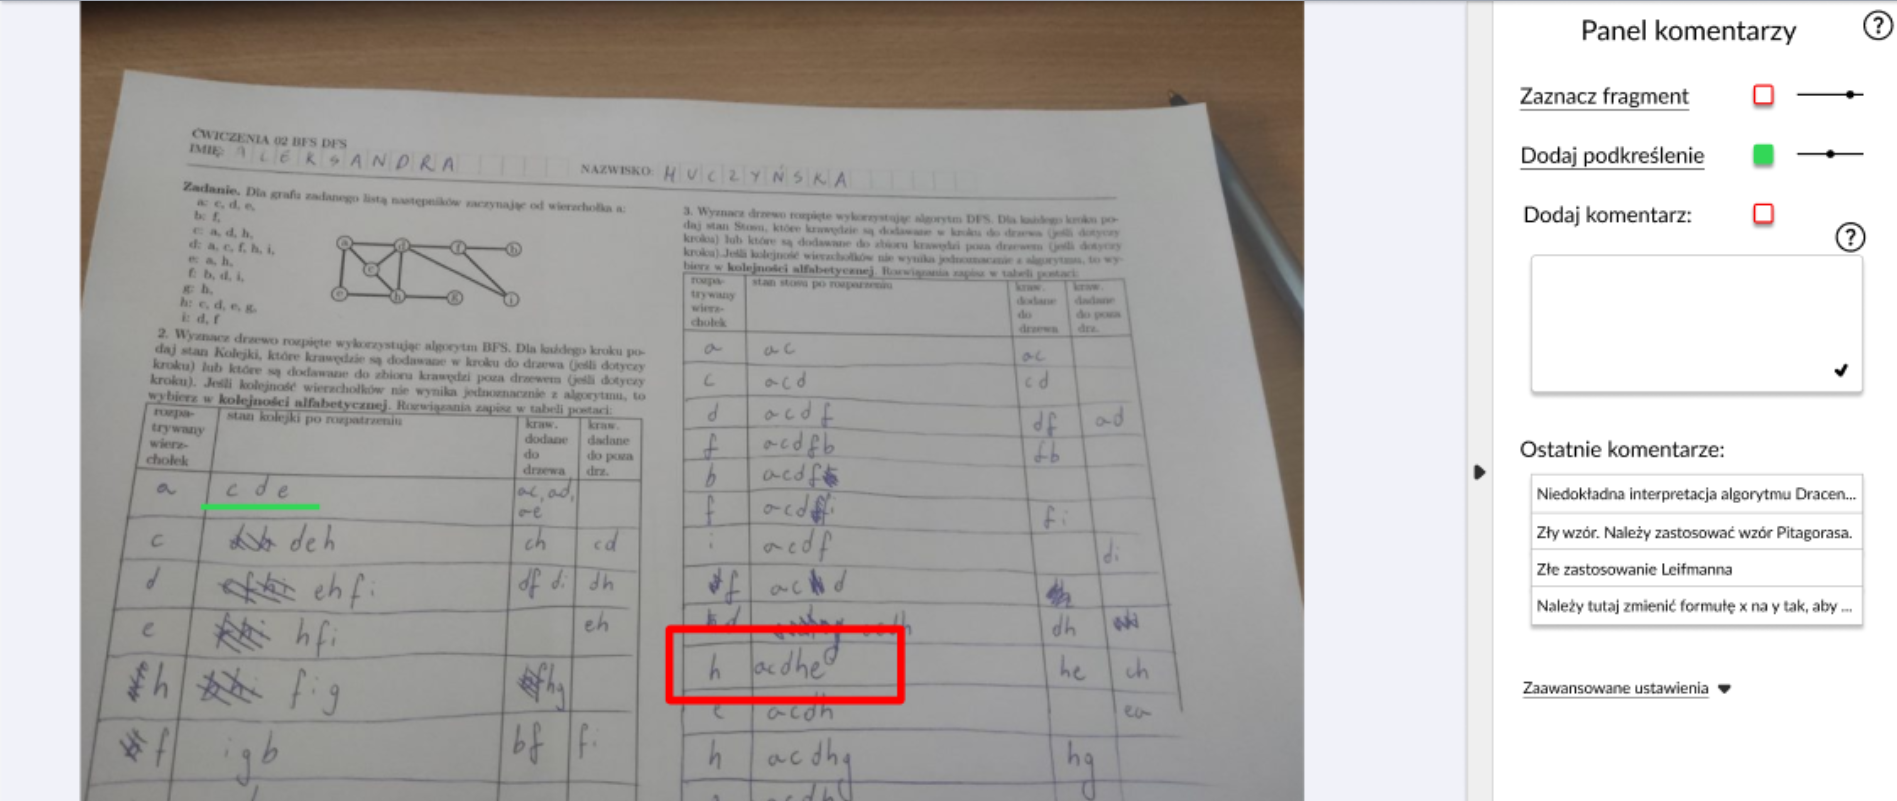 ĆWICZENIA 02 BFS DFS
IMIĘ: ALEKSANDRA NAZWISKO: HUCZYŃSKA
Zadanie. Dla grafu zadanego listą następników zaczynając od wierzchołka a:
a: c, d, e,
b: f,
c: a, d, h,
d: a, c, f, h, i,
e: a, h,
f: b, d, i,
g: h,
h: c, d, e, g,
i: d, f
a d f b
c
e h g i
2. Wyznacz drzewo rozpięte wykorzystując algorytm BFS. Dla każdego kroku po-
daj stan Kolejki, które krawędzie są dodawane w kroku do drzewa (jeśli dotyczy
kroku) lub które są dodawane do zbioru krawędzi poza drzewem (jeśli dotyczy
kroku). Jeśli kolejność wierzchołków nie wynika jednoznacznie z algorytmu, to
wybierz w kolejności alfabetycznej. Rozwiązania zapisz w tabeli postaci:
rozpa-
trywany
wierz-
chołek
stan kolejki po rozpatrzeniu
kraw.
dodane
do
drzewa
kraw.
dadane
do poza
drz.
a c d e ac, ad,
ae
c deh ch cd
d ehfi df di dh
e hfi eh
h fig hg
f igb bf fi
3. Wyznacz drzewo rozpięte wykorzystując algorytm DFS. Dla każdego kroku po-
daj stan Stosu, które krawędzie są dodawane w kroku do drzewa (jeśli dotyczy
kroku) lub które są dodawane do zbioru krawędzi poza drzewem (jeśli dotyczy
kroku). Jeśli kolejność wierzchołków nie wynika jednoznacznie z algorytmu, to wy-
bierz w kolejności alfabetycznej. Rozwiązania zapisz w tabeli postaci:
rozpa-
trywany
wierz-
chołek
stan stosu po rozparzeniu
kraw.
dodane
do
drzewa
kraw.
dadane
do poza
drz.
a ac ac
c acd cd
d acdf df ad
f acdfb fb
b acdf
f acdfi fi
i acdf di
f ac d
d dh
h acdhe he ch
e acdh ea
h acdhg hg
Panel komentarzy ?
Zaznacz fragment
Dodaj podkreślenie
Dodaj komentarz:
?
Ostatnie komentarze:
Niedokładna interpretacja algorytmu Dracen...
Zły wzór. Należy zastosować wzór Pitagorasa.
Złe zastosowanie Leifmanna
Należy tutaj zmienić formułę x na y tak, aby ...
Zaawansowane ustawienia